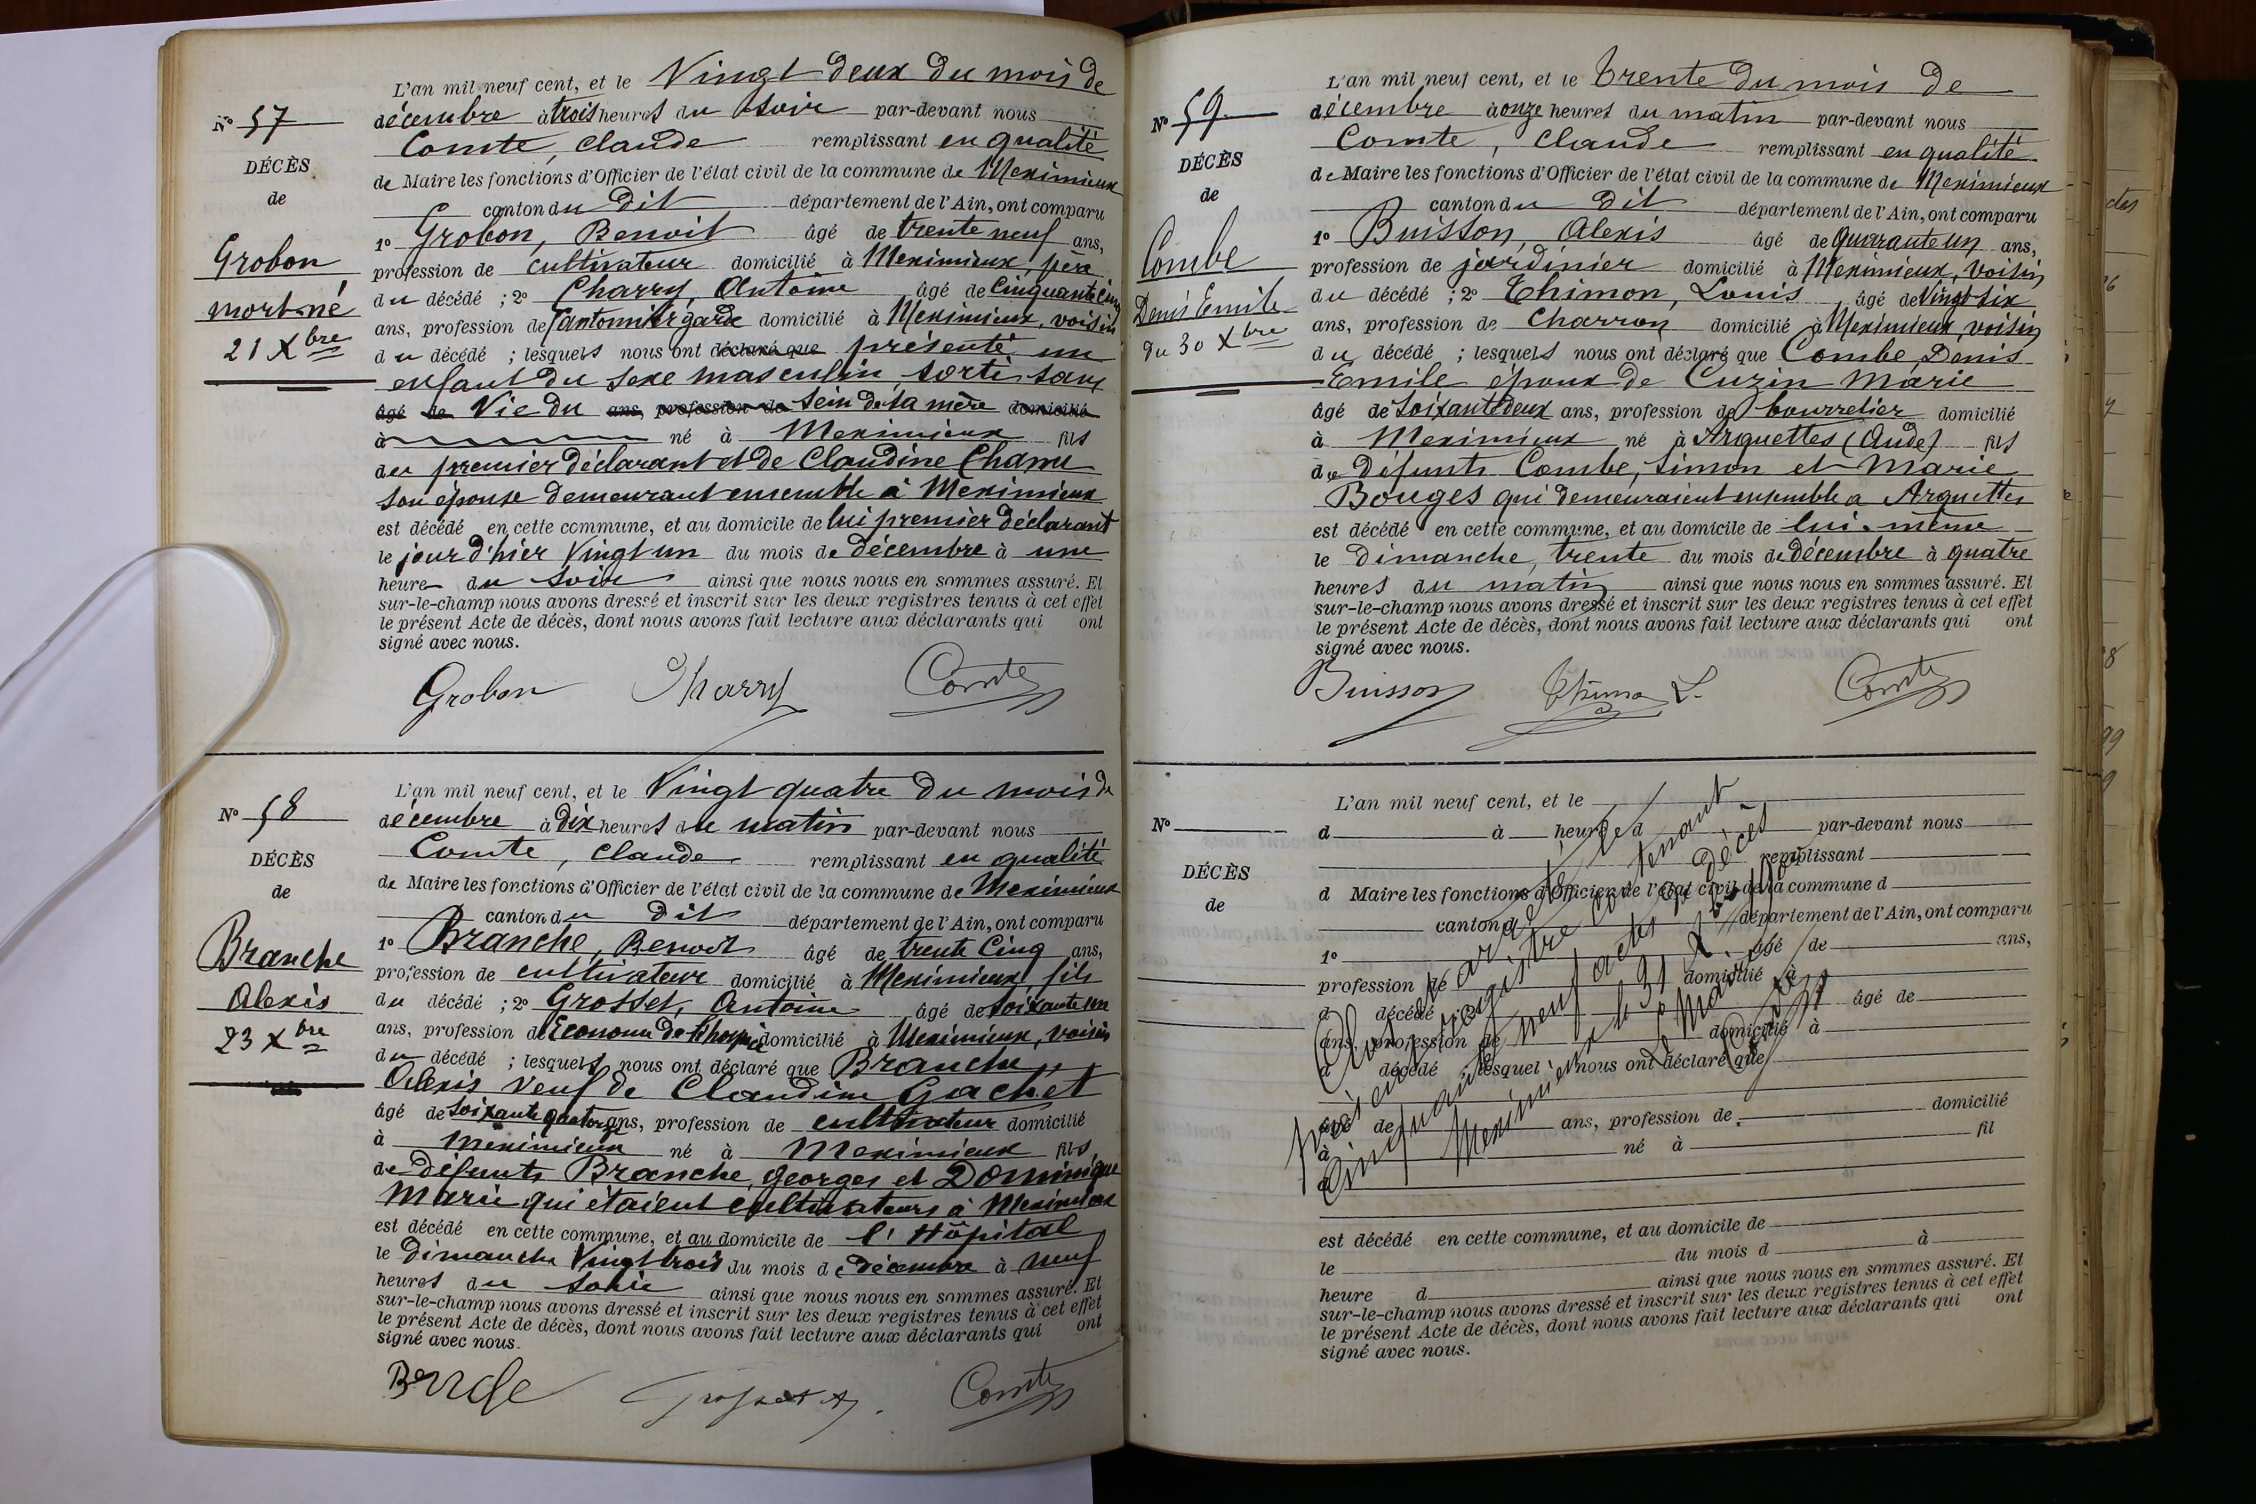 L'an mil neuf cent, et le Vingt deux du mois de
Nº 57
décembre à trois heures du soir par-devant nous
Comte, Claude remplissant en qualité
DÉCÈS
de Maire les fonctions d'Officier de l'état civil de la commune de Meximieux
de
canton du dit département de l'Ain, ont comparu
1º Grobon, Benoit âgé de trente neuf ans,
Grobon
profession de cultivateur domicilié à Meximieux, père
mort-né
du décédé ; 2º Charry, Antoine âgé de Cinquante cinq
21 Xbre
ans, profession de Cantonnier garde domicilié à Meximieux, voisin
du décédé ; lesquels nous ont déclaré que présenté un
enfant du sexe masculin, sorti sans
âgé de Vie du ans, profession de sein de sa mère domicilié
à né à Meximieux fils
du premier déclarant et de Claudine Chanu
son épouse demeurant ensemble à Meximieux
est décédé en cette commune, et au domicile de lui premier déclarant
le jour d'hier Vingt un du mois de décembre à une
heure du soir ainsi que nous nous en sommes assuré. Et
sur-le-champ nous avons dressé et inscrit sur les deux registres tenus à cet effet
le présent Acte de décès, dont nous avons fait lecture aux déclarants qui ont
signé avec nous.
Grobon Charry Comte
L'an mil neuf cent, et le Vingt quatre du mois de
Nº 58
décembre à Dix heures du matin par-devant nous
Comte, Claude remplissant en qualité
DÉCÈS
de Maire les fonctions d'Officier de l'état civil de la commune de Meximieux
de
canton du dit département de l'Ain, ont comparu
1º Branche, Benoit âgé de trente Cinq ans,
Branche
profession de cultivateur domicilié à Meximieux, fils
Alexis
du décédé ; 2º Grosset, Antoine âgé de soixante un
23 Xbre
ans, profession d'Econome de l'hospice domicilié à Meximieux, voisin
du décédé ; lesquels nous ont déclaré que Branche
Alexis veuf de Claudine Gachet
âgé de soixante quatorze ans, profession de cultivateur domicilié
à Meximieux né à Meximieux fils
de défunts Branche, Georges et Dominique
Marie qui étaient cultivateurs à Meximieux
est décédé en cette commune, et au domicile de l'Hôpital
le dimanche Vingt trois du mois de décembre à neuf
heures du soir ainsi que nous nous en sommes assuré. Et
sur-le-champ nous avons dressé et inscrit sur les deux registres tenus à cet effet
le présent Acte de décès, dont nous avons fait lecture aux déclarants qui ont
signé avec nous.
Grosset A. Comte
L'an mil neuf cent, et le trente du mois de
Nº 59
décembre à onze heures du matin par-devant nous
Comte, Claude remplissant en qualité
DÉCÈS
de Maire les fonctions d'Officier de l'état civil de la commune de Meximieux
de
canton du dit département de l'Ain, ont comparu
1º Buisson, Alexis âgé de Quarante un ans,
Combe
profession de jardinier domicilié à Meximieux, voisin
Denis Emile
du décédé ; 2º Thimon, Louis âgé de Vingt six
du 30 Xbre
ans, profession de Charron domicilié à Meximieux, voisin
du décédé ; lesquels nous ont déclaré que Combe, Denis
Emile époux de Cuzin Marie
âgé de soixante deux ans, profession de bourrelier domicilié
à Meximieux né à Arquettes (Aude) fils
de Défunts Combe, Simon et Marie
Bouges qui demeuraient ensemble à Arquettes
est décédé en cette commune, et au domicile de lui-même
le dimanche, trente du mois de décembre à quatre
heures du matin ainsi que nous nous en sommes assuré. Et
sur-le-champ nous avons dressé et inscrit sur les deux registres tenus à cet effet
le présent Acte de décès, dont nous avons fait lecture aux déclarants qui ont
signé avec nous.
Buisson Thimon L. Comte
L'an mil neuf cent, et le
Nº
d à heure d par-devant nous
remplissant
DÉCÈS
d Maire les fonctions d'Officier de l'état civil de la commune d
de
canton d département de l'Ain, ont comparu
1º âgé de ans,
profession de domicilié à
d décédé ; 2º âgé de
ans, profession de domicilié à
d décédé ; lesquel nous ont déclaré que
âgé de ans, profession de domicilié
à né à fil
d
est décédé en cette commune, et au domicile de
le du mois d à
heure d ainsi que nous nous en sommes assuré. Et
sur-le-champ nous avons dressé et inscrit sur les deux registres tenus à cet effet
le présent Acte de décès, dont nous avons fait lecture aux déclarants qui ont
signé avec nous.
Clos et arrêté le
présent registre contenant
Cinquante neuf actes de décès
Meximieux le 31 Xbre 1900
Le Maire
Comte